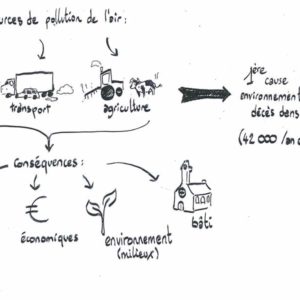 urces de pollution de l'air :
transport
agriculture
1ère
cause
environnement
décès dans
(42 000 /an
conséquences :
€
économiques
environnement
(milieux)
bâti